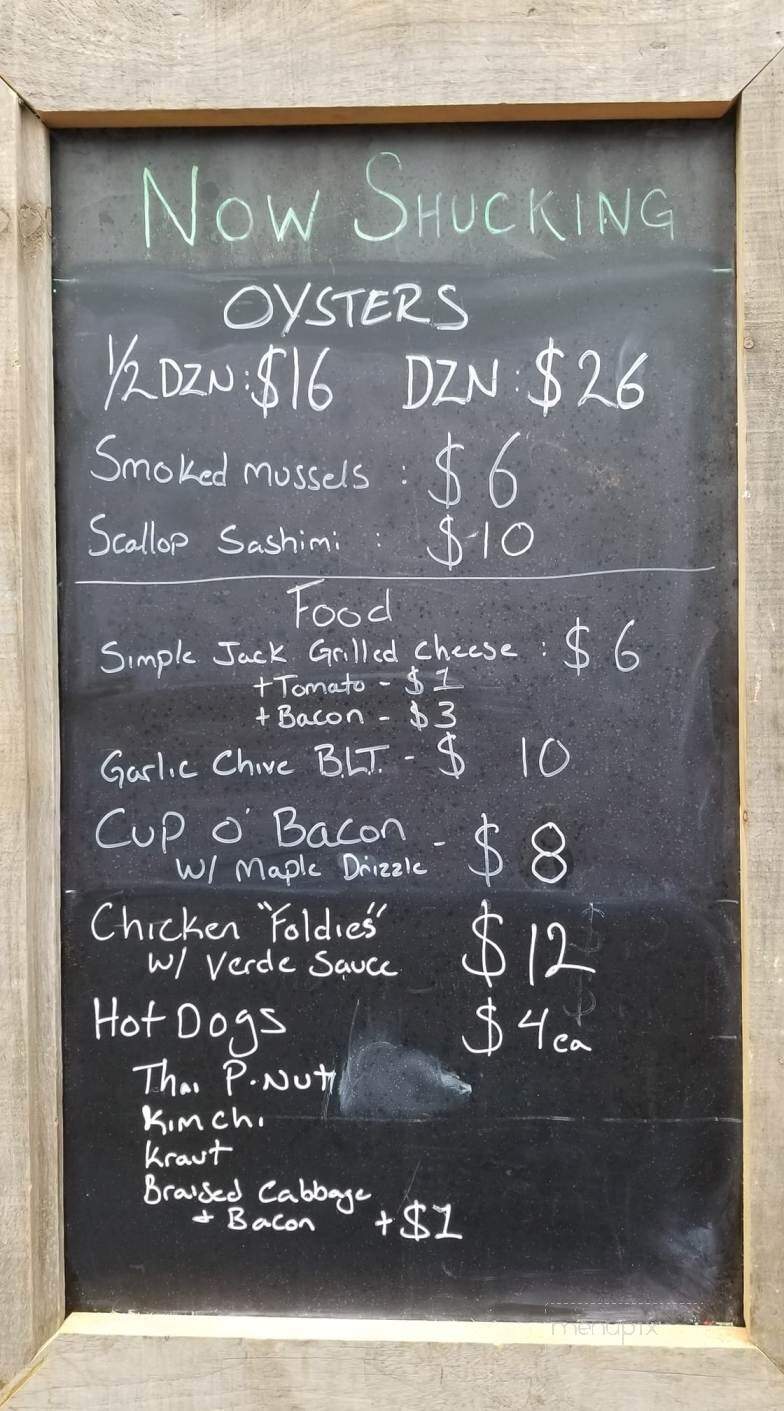 NOW SHUCKING
OYSTERS
1/2 DZN: $16 DZN: $26
Smoked mussels : $6
Scallop Sashimi : $10
Food
Simple Jack Grilled cheese : $6
+Tomato - $1
+Bacon - $3
Garlic Chive B.L.T. - $ 10
Cup O' Bacon - $8
w/ Maple Drizzle
Chicken "Foldies" $12
w/ Verde Sauce
Hot Dogs $4 ea
Thai P-Nut
Kimchi
Kraut
Braised Cabbage
+ Bacon +$1
menupix